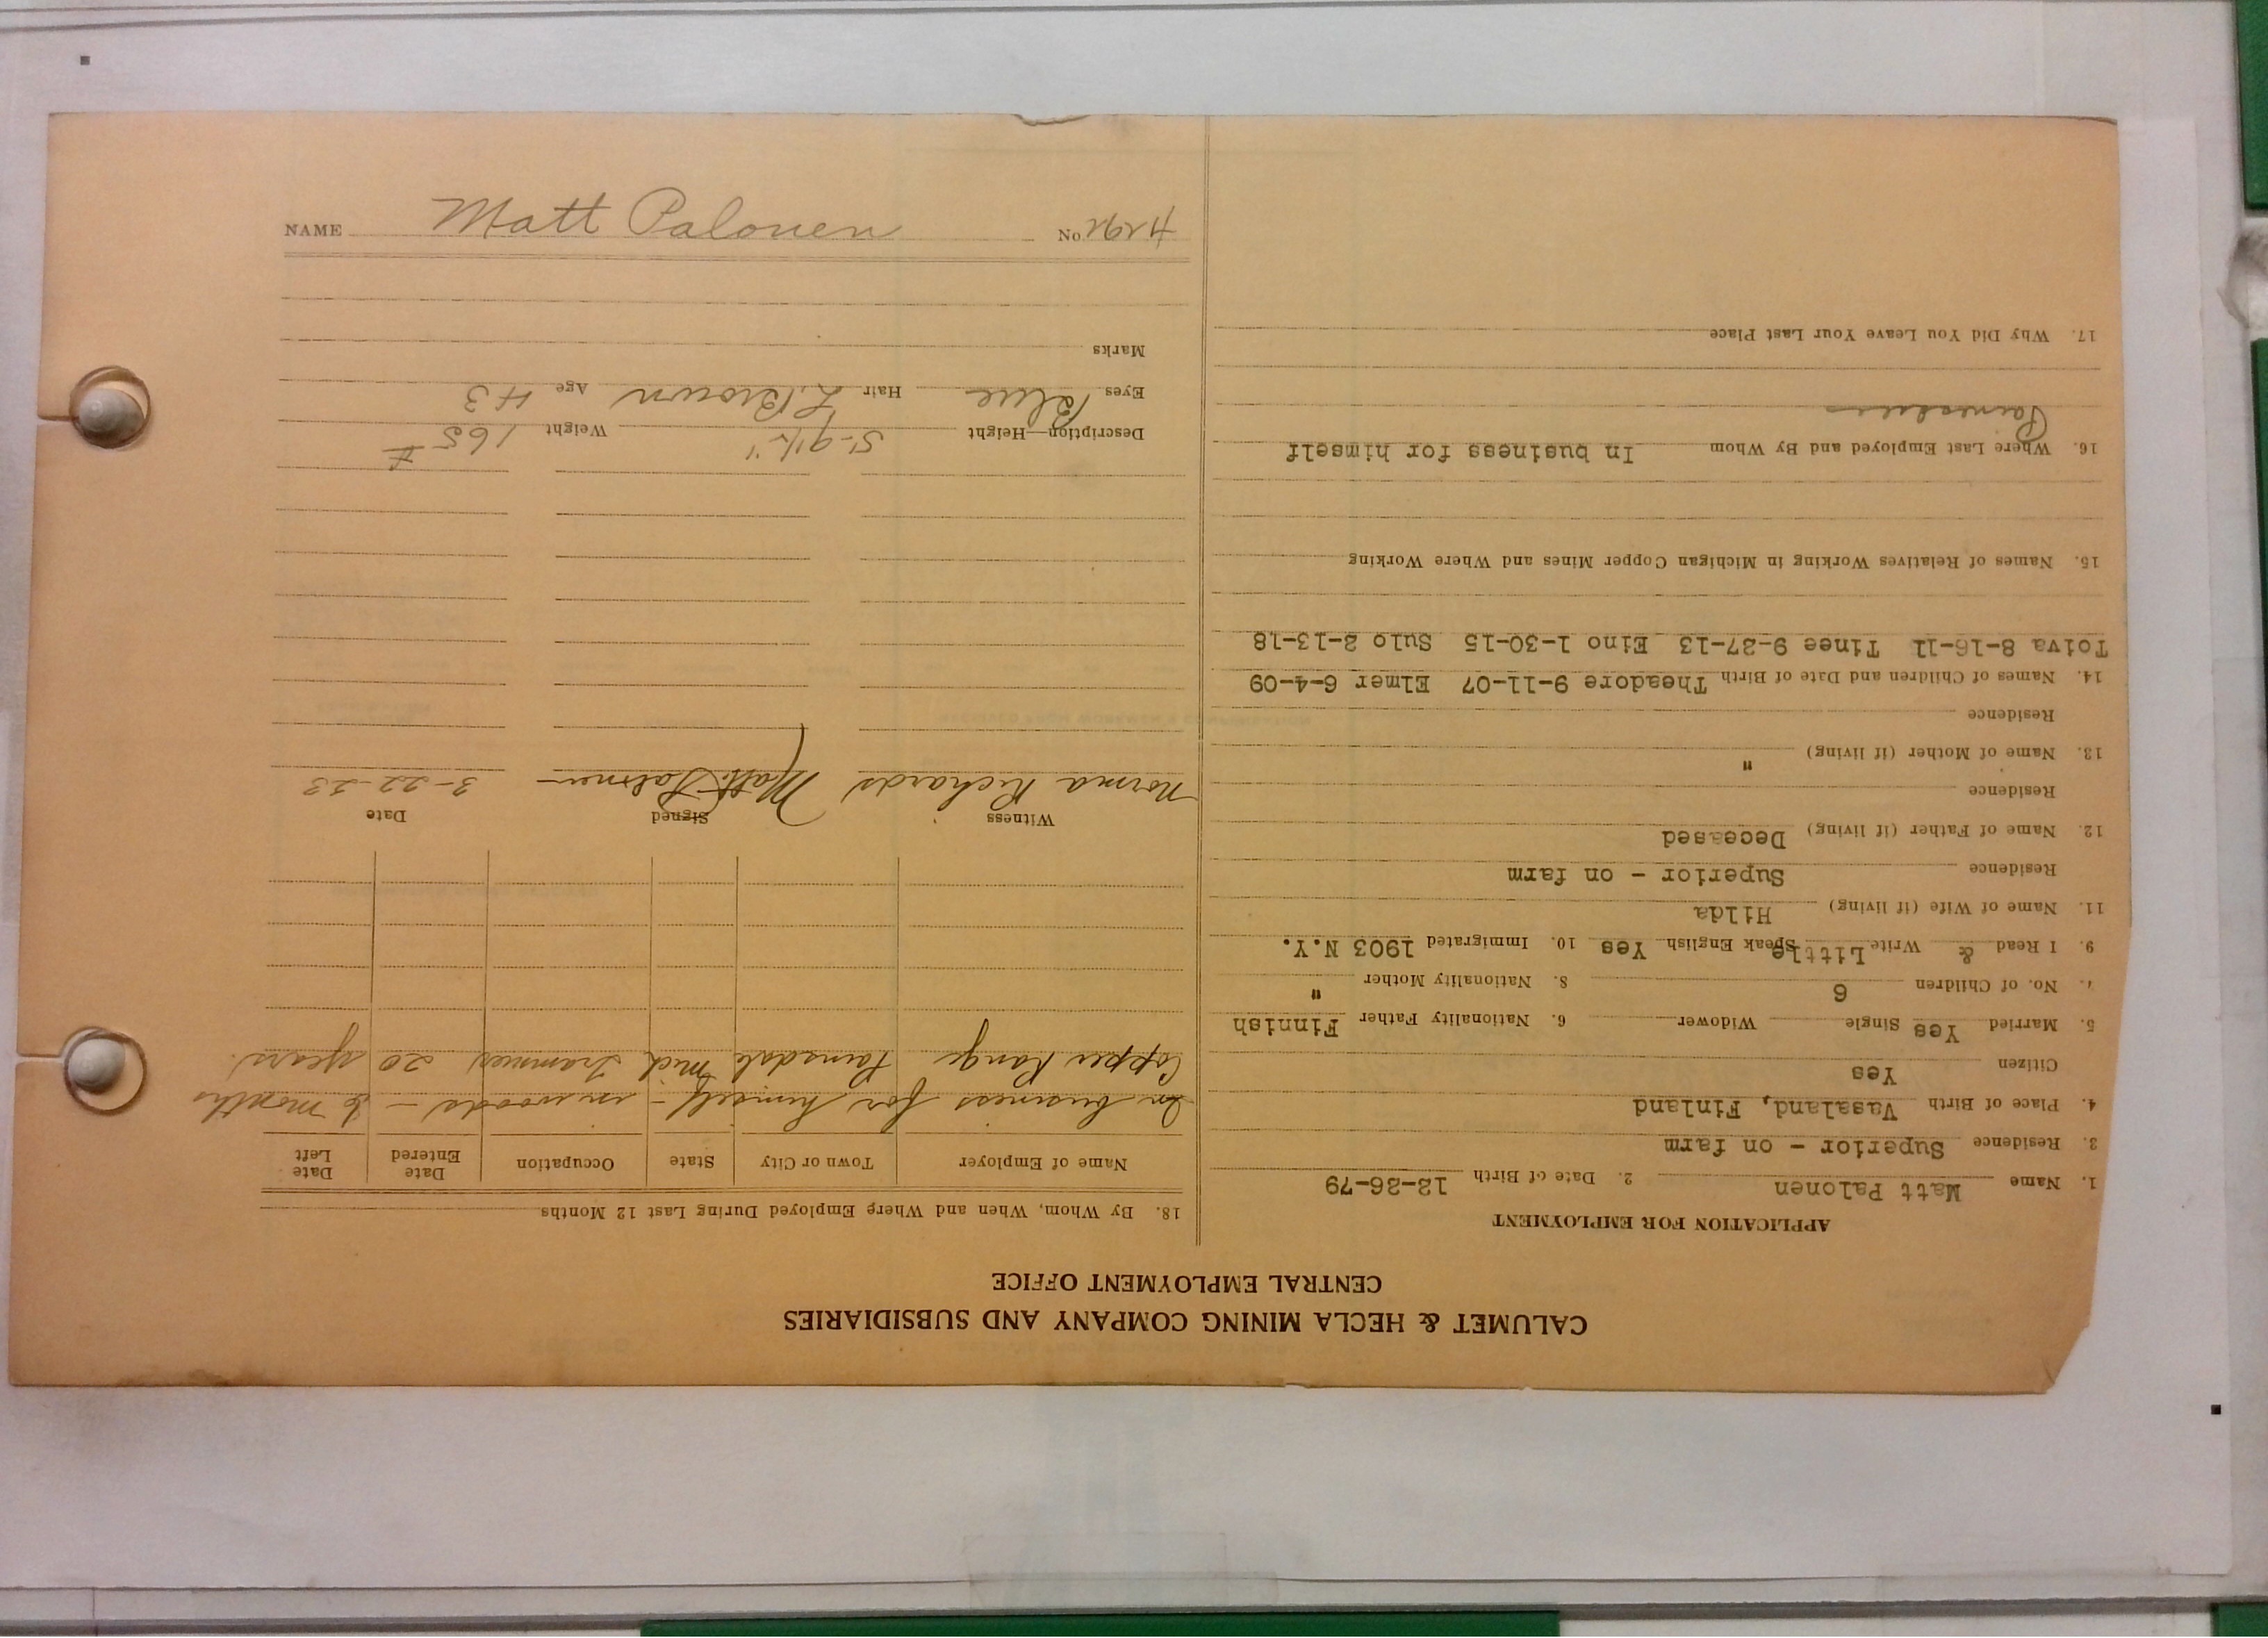 CALUMET & HECLA MINING COMPANY AND SUBSIDIARIES
CENTRAL EMPLOYMENT OFFICE
APPLICATION FOR EMPLOYMENT
1. Name Matt Palonen 2. Date of Birth 12-26-79
3. Residence Superior - on farm
4. Place of Birth Vasaland, Finland
Citizen Yes
5. Married Yes Single Widower 6. Nationality Father Finnish
7. No. of Children 6 8. Nationality Mother "
9. I Read & Write Little Speak English Yes 10. Immigrated 1903 N.Y.
11. Name of Wife (if living) Hilda
Residence Superior - on farm
12. Name of Father (if living) Deceased
Residence
13. Name of Mother (if living) "
Residence
14. Names of Children and Date of Birth Theadore 9-11-07 Elmer 6-4-09
Toiva 8-16-11 Tinee 9-27-13 Eino 1-30-15 Sulo 2-13-18
15. Names of Relatives Working in Michigan Copper Mines and Where Working
16. Where Last Employed and By Whom In business for himself
17. Why Did You Leave Your Last Place
18. By Whom, When and Where Employed During Last 12 Months
Name of Employer Town or City State Occupation Date Entered Date Left
In business for himself - in woods - 6 months
Copper Range Painsdale Mich Trammer 20 years.
Witness Signed Date
Norma Richards Matt Palonen 3-22-23
Description—Height 5-9½" Weight 165 #
Eyes Blue Hair L. Brown Age 43
Marks
NAME Matt Palonen No.